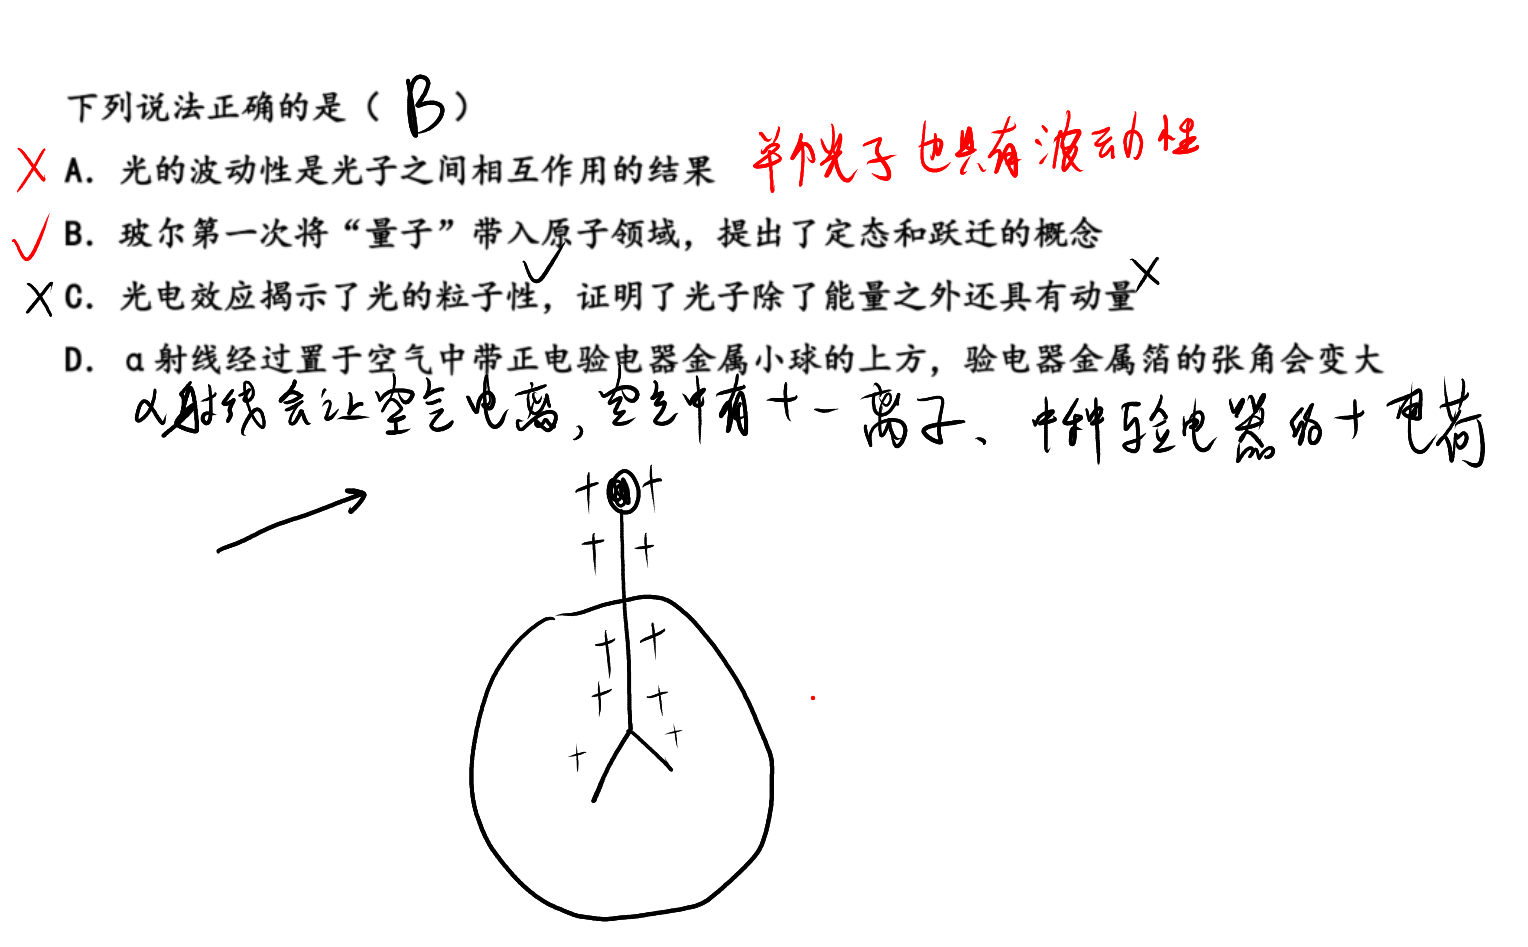 下列说法正确的是（ B ）
× A．光的波动性是光子之间相互作用的结果 单个光子也具有波动性
✓ B．玻尔第一次将“量子”带入原子领域，提出了定态和跃迁的概念
× C．光电效应揭示了光的粒子性，✓证明了光子除了能量之外还具有动量×
D．α射线经过置于空气中带正电验电器金属小球的上方，验电器金属箔的张角会变大
α射线会让空气电离，空气中有＋－离子、中种验电器的＋电荷
+ +
+ +
+ +
+ +
+ +